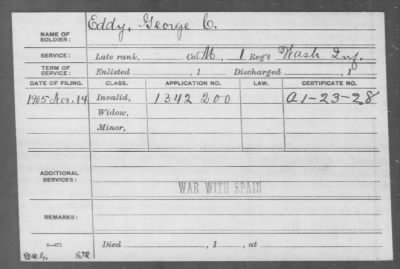 NAME OF SOLDIER: Eddy, George C.
SERVICE: Late rank, Co. M, 1 Reg't Wash Inf.
TERM OF SERVICE: Enlisted , 1 Discharged , 1
DATE OF FILING. CLASS. APPLICATION NO. LAW. CERTIFICATE NO.
1905 Nov. 14 Invalid, 1342 200 A1-23-28
Widow,
Minor,
ADDITIONAL SERVICES:
WAR WITH SPAIN
REMARKS:
Died , 1 , at